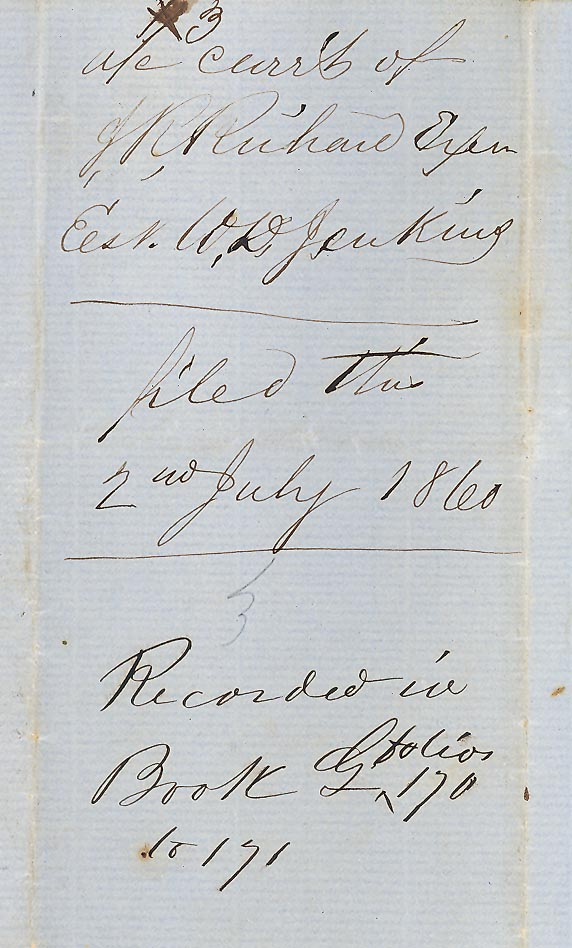 3
a/c currt of
J, R, Richard Exr
Est. W, D, Jenkins
filed this
2nd July 1860
3
Recorded in
Book G folios 170
to 171